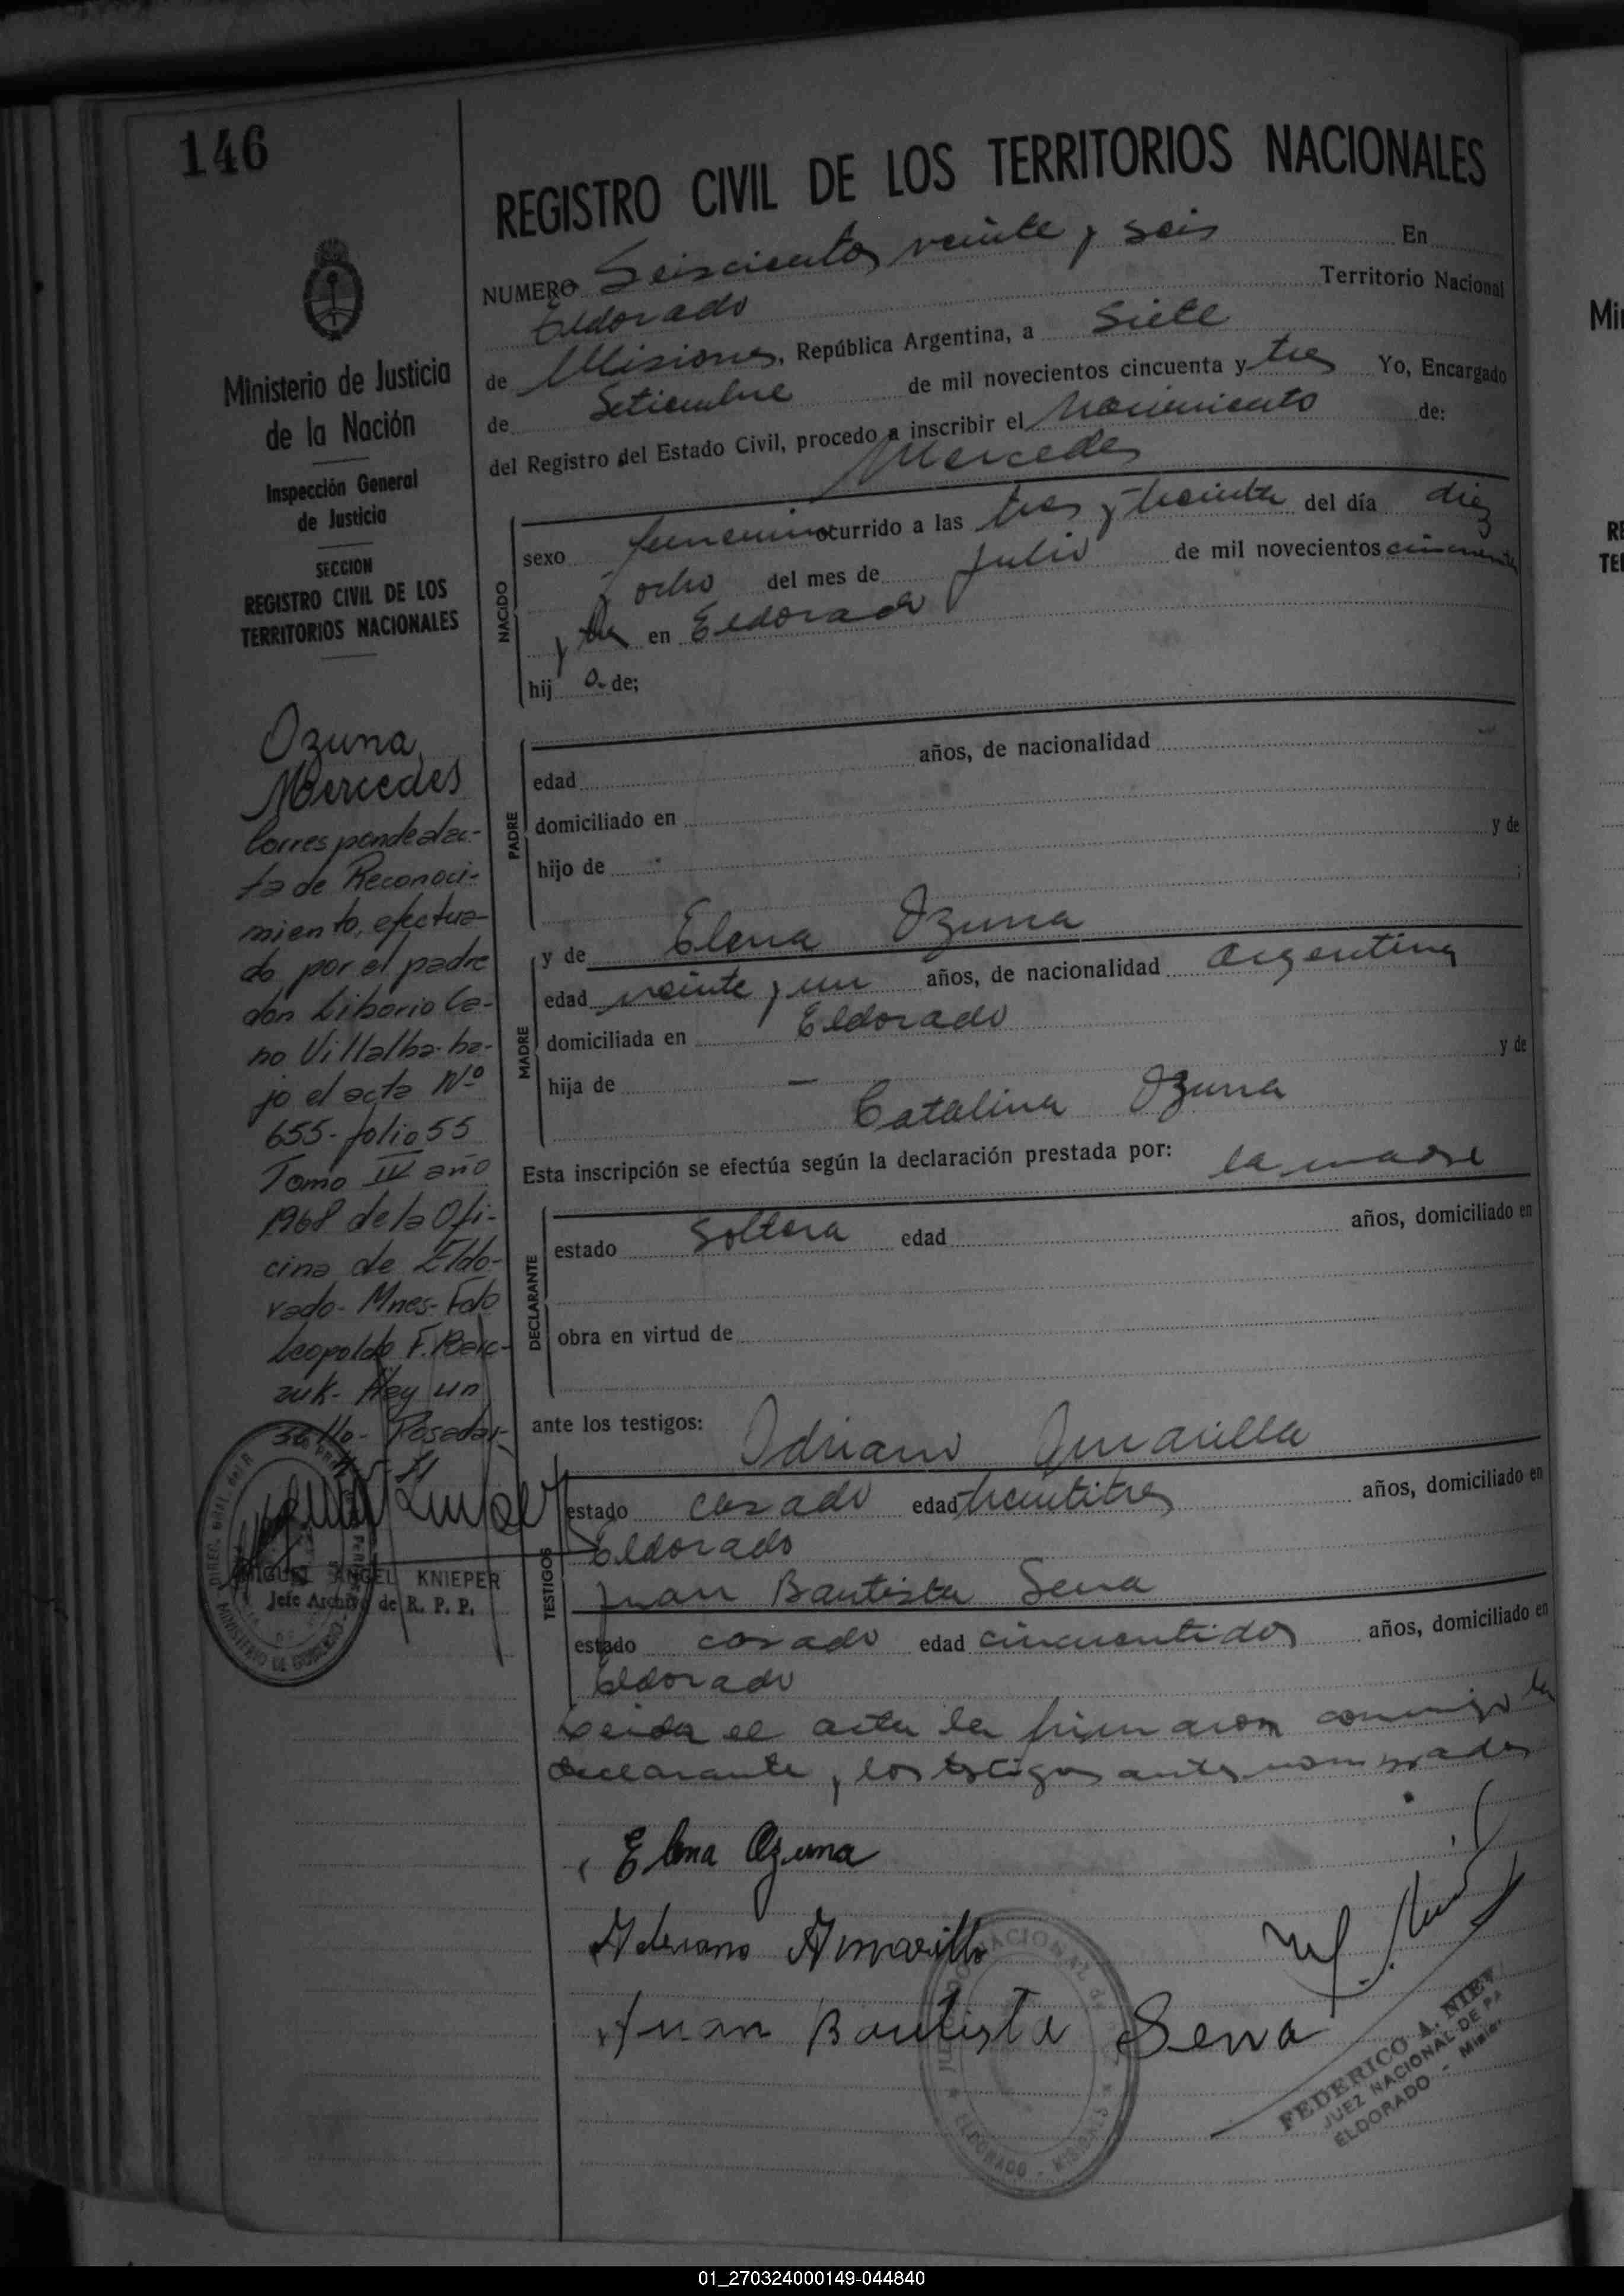 146
Ministerio de Justicia
de la Nación
Inspección General
de Justicia
SECCION
REGISTRO CIVIL DE LOS
TERRITORIOS NACIONALES
Ozuna,
Mercedes
Corresponde al ac-
ta de Reconoci-
miento, efectua-
do por el padre
don Liborio Ca-
no Villalba-ba-
jo el acta Nº
655-folio 55
Tomo IV año
1968 de la Ofi-
cina de Eldo-
rado- Mnes- Fdo
Leopoldo F.
zuk- Hay un
sello- Posadas
MIGUEL ANGEL KNIEPER
Jefe Archivo de R. P. P.
REGISTRO CIVIL DE LOS TERRITORIOS NACIONALES
NUMERO Seiscientos veinte y seis En
Eldorado Territorio Nacional
de Misiones, República Argentina, a Siete
de Setiembre de mil novecientos cincuenta y tres Yo, Encargado
del Registro del Estado Civil, procedo a inscribir el Nacimiento de:
Mercedes
NACIDO
sexo femenino ocurrido a las tres y treinta del día diez
y ocho del mes de Julio de mil novecientos cincuenta
y tres en Eldorado
hij a de;
PADRE
edad años, de nacionalidad
domiciliado en
hijo de y de
;
MADRE
y de Elena Ozuna
edad veinte y un años, de nacionalidad argentina
domiciliada en Eldorado
hija de — y de
Catalina Ozuna
Esta inscripción se efectúa según la declaración prestada por: la madre
DECLARANTE
estado Soltera edad años, domiciliado en
obra en virtud de
ante los testigos:
Adriano Amarilla
TESTIGOS
estado casado edad treintitres años, domiciliado en
Eldorado
Juan Bautista Sena
estado casado edad cincuentidos años, domiciliado en
Eldorado
Leida el acta la firmaron conmigo la
declarante y los testigos antes nombrados
Elena Ozuna
Adriano Amarilla
Juan Bautista Sena
ELDORADO - MISIONES
FEDERICO A.
JUEZ NACIONAL DE
ELDORADO -
01_270324000149-044840